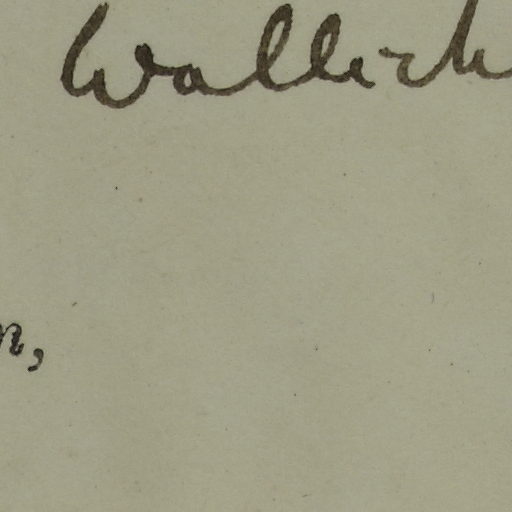 Wallich
n,